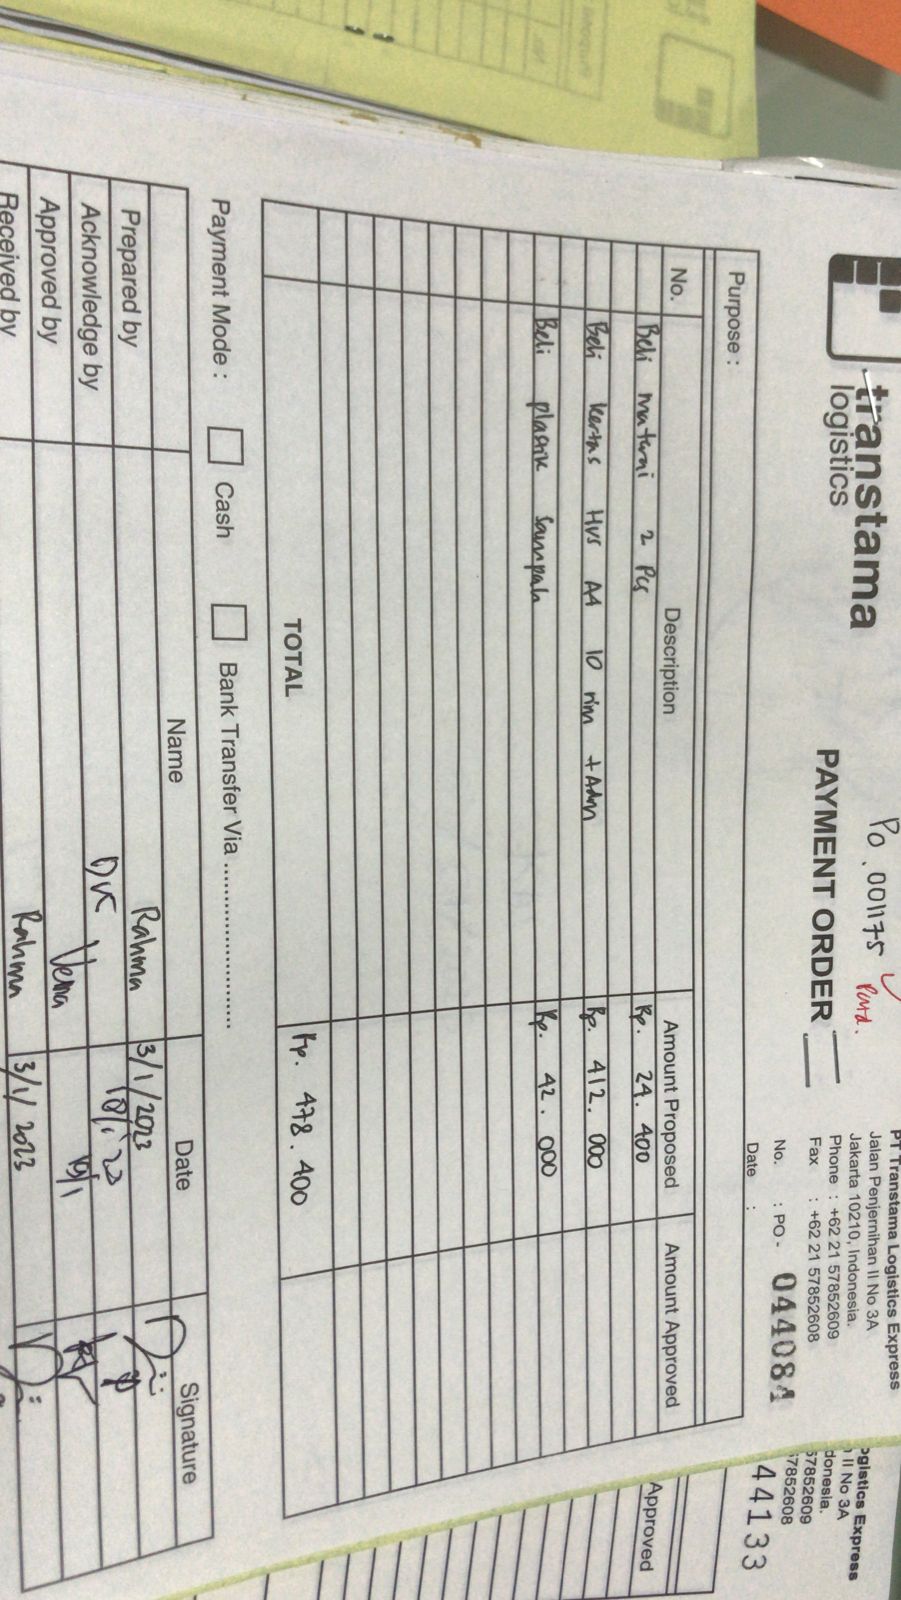 transtama
logistics
PO. 001175
Paid.
PAYMENT ORDER
PT Transtama Logistics Express
Jalan Penjernihan II No 3A
Jakarta 10210, Indonesia.
Phone : +62 21 57852609
Fax : +62 21 57852608
No. : PO - 044084
Date :
Purpose :
No. Description Amount Proposed Amount Approved
Beli materai 2 Pcs Rp. 24.400
Beli kertas HVS A4 10 rim + Adm Rp. 412.000
Beli plastik sampah Rp. 42.000
TOTAL Rp. 478.400
Payment Mode : Cash Bank Transfer Via ....................
Name Date Signature
Prepared by Rahma 3/1/2023
Acknowledge by
Approved by Vema 10/1
Received by Rahma 3/1/2023
ogistics Express
II No 3A
donesia.
57852609
57852608
44133
Approved